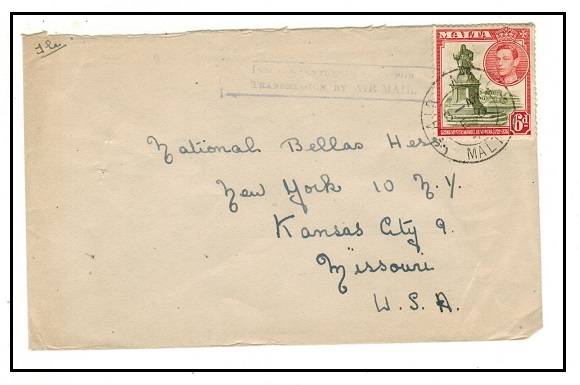 MALTA
TRANSMISSION BY AIR MAIL.
6d
MALTA
National Bellas Hess
New York 10 N.Y.
Kansas City 9.
Missouri
U.S.A.